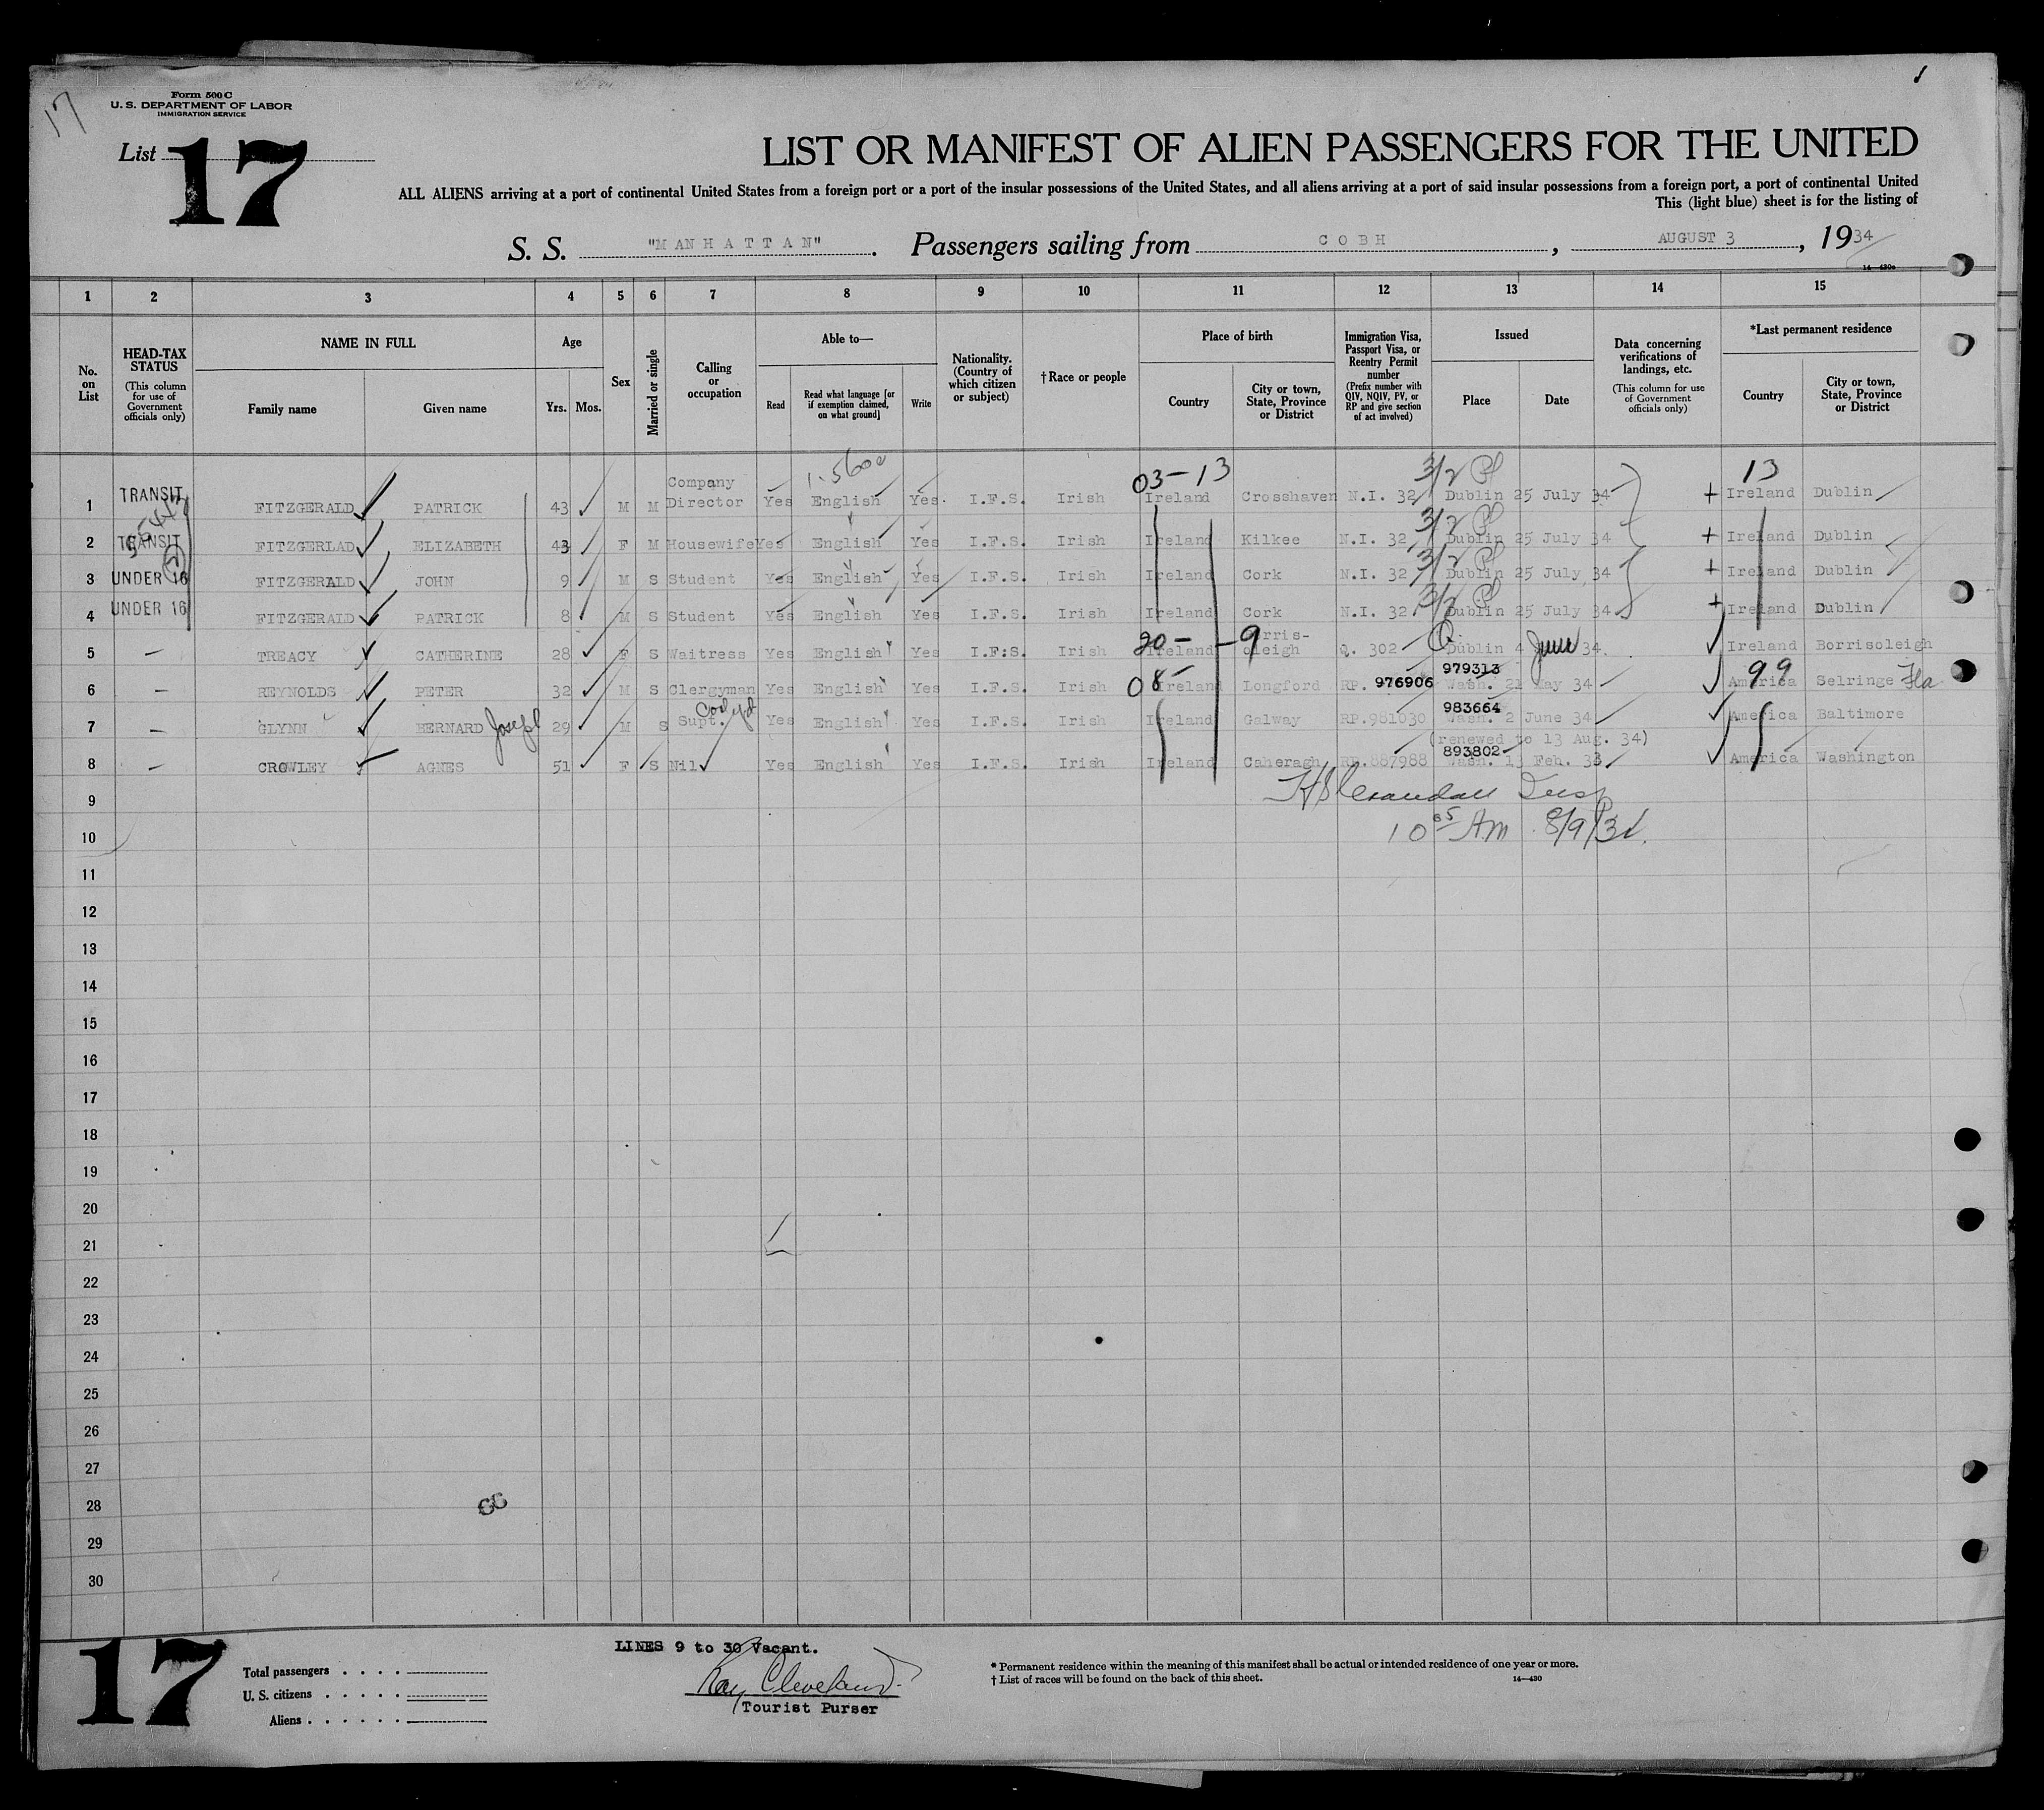 17
Form 500 C
U. S. DEPARTMENT OF LABOR
IMMIGRATION SERVICE
List 17
LIST OR MANIFEST OF ALIEN PASSENGERS FOR THE UNITED
ALL ALIENS arriving at a port of continental United States from a foreign port or a port of the insular possessions of the United States, and all aliens arriving at a port of said insular possessions from a foreign port, a port of continental United
This (light blue) sheet is for the listing of
S. S. "MANHATTAN". Passengers sailing from COBH, AUGUST 3, 1934
14—430a
1 2 3 4 5 6 7 8 9 10 11 12 13 14 15
No. on List
HEAD-TAX STATUS (This column for use of Government officials only)
NAME IN FULL
Family name Given name
Age
Yrs. Mos.
Sex
Married or single
Calling or occupation
Able to—
Read
Read what language [or if exemption claimed, on what ground]
Write
Nationality. (Country of which citizen or subject)
†Race or people
Place of birth
Country
City or town, State, Province or District
Immigration Visa, Passport Visa, or Reentry Permit number (Prefix number with QIV, NQIV, PV, or RP and give section of act involved)
Issued
Place Date
Data concerning verifications of landings, etc. (This column for use of Government officials only)
*Last permanent residence
Country
City or town, State, Province or District
03-13 3/2 13
1 TRANSIT FITZGERALD PATRICK 43 M M Company Director Yes English Yes I.F.S. Irish Ireland Crosshaven N.I. 32 Dublin 25 July 34 + Ireland Dublin
3/2
2 TRANSIT FITZGERLAD ELIZABETH 43 F M Housewife Yes English Yes I.F.S. Irish Ireland Kilkee N.I. 32 Dublin 25 July 34 + Ireland Dublin
3/2
3 UNDER 16 FITZGERALD JOHN 9 M S Student Yes English Yes I.F.S. Irish Ireland Cork N.I. 32 Dublin 25 July 34 + Ireland Dublin
3/2
4 UNDER 16 FITZGERALD PATRICK 8 M S Student Yes English Yes I.F.S. Irish Ireland Cork N.I. 32 Dublin 25 July 34 + Ireland Dublin
20- -9
5 — TREACY CATHERINE 28 F S Waitress Yes English Yes I.F.S. Irish Ireland Borris-oleigh Q. 302 Dublin 4 June 34. Ireland Borrisoleigh
08- 979313 99
6 — REYNOLDS PETER 32 M S Clergyman Yes English Yes I.F.S. Irish Ireland Longford RP. 976906 Wash. 21 May 34 America Selringe Fla
983664
7 — GLYNN BERNARD Joseph 29 M S Supt. Yes English Yes I.F.S. Irish Ireland Galway RP.981030 Wash. 2 June 34 America Baltimore
(renewed to 13 Aug. 34)
893802
8 — CROWLEY AGNES 51 F S Nil Yes English Yes I.F.S. Irish Ireland Caheragh RP.887988 Wash. 13 Feb. 33 America Washington
9
10 10 05 AM 8/9/34.
11
12
13
14
15
16
17
18
19
20
21
22
23
24
25
26
27
28
29
30
17
LINES 9 to 30 Vacant.
Ray Cleveland
Tourist Purser
Total passengers
U. S. citizens
Aliens
* Permanent residence within the meaning of this manifest shall be actual or intended residence of one year or more.
† List of races will be found on the back of this sheet.
14—430